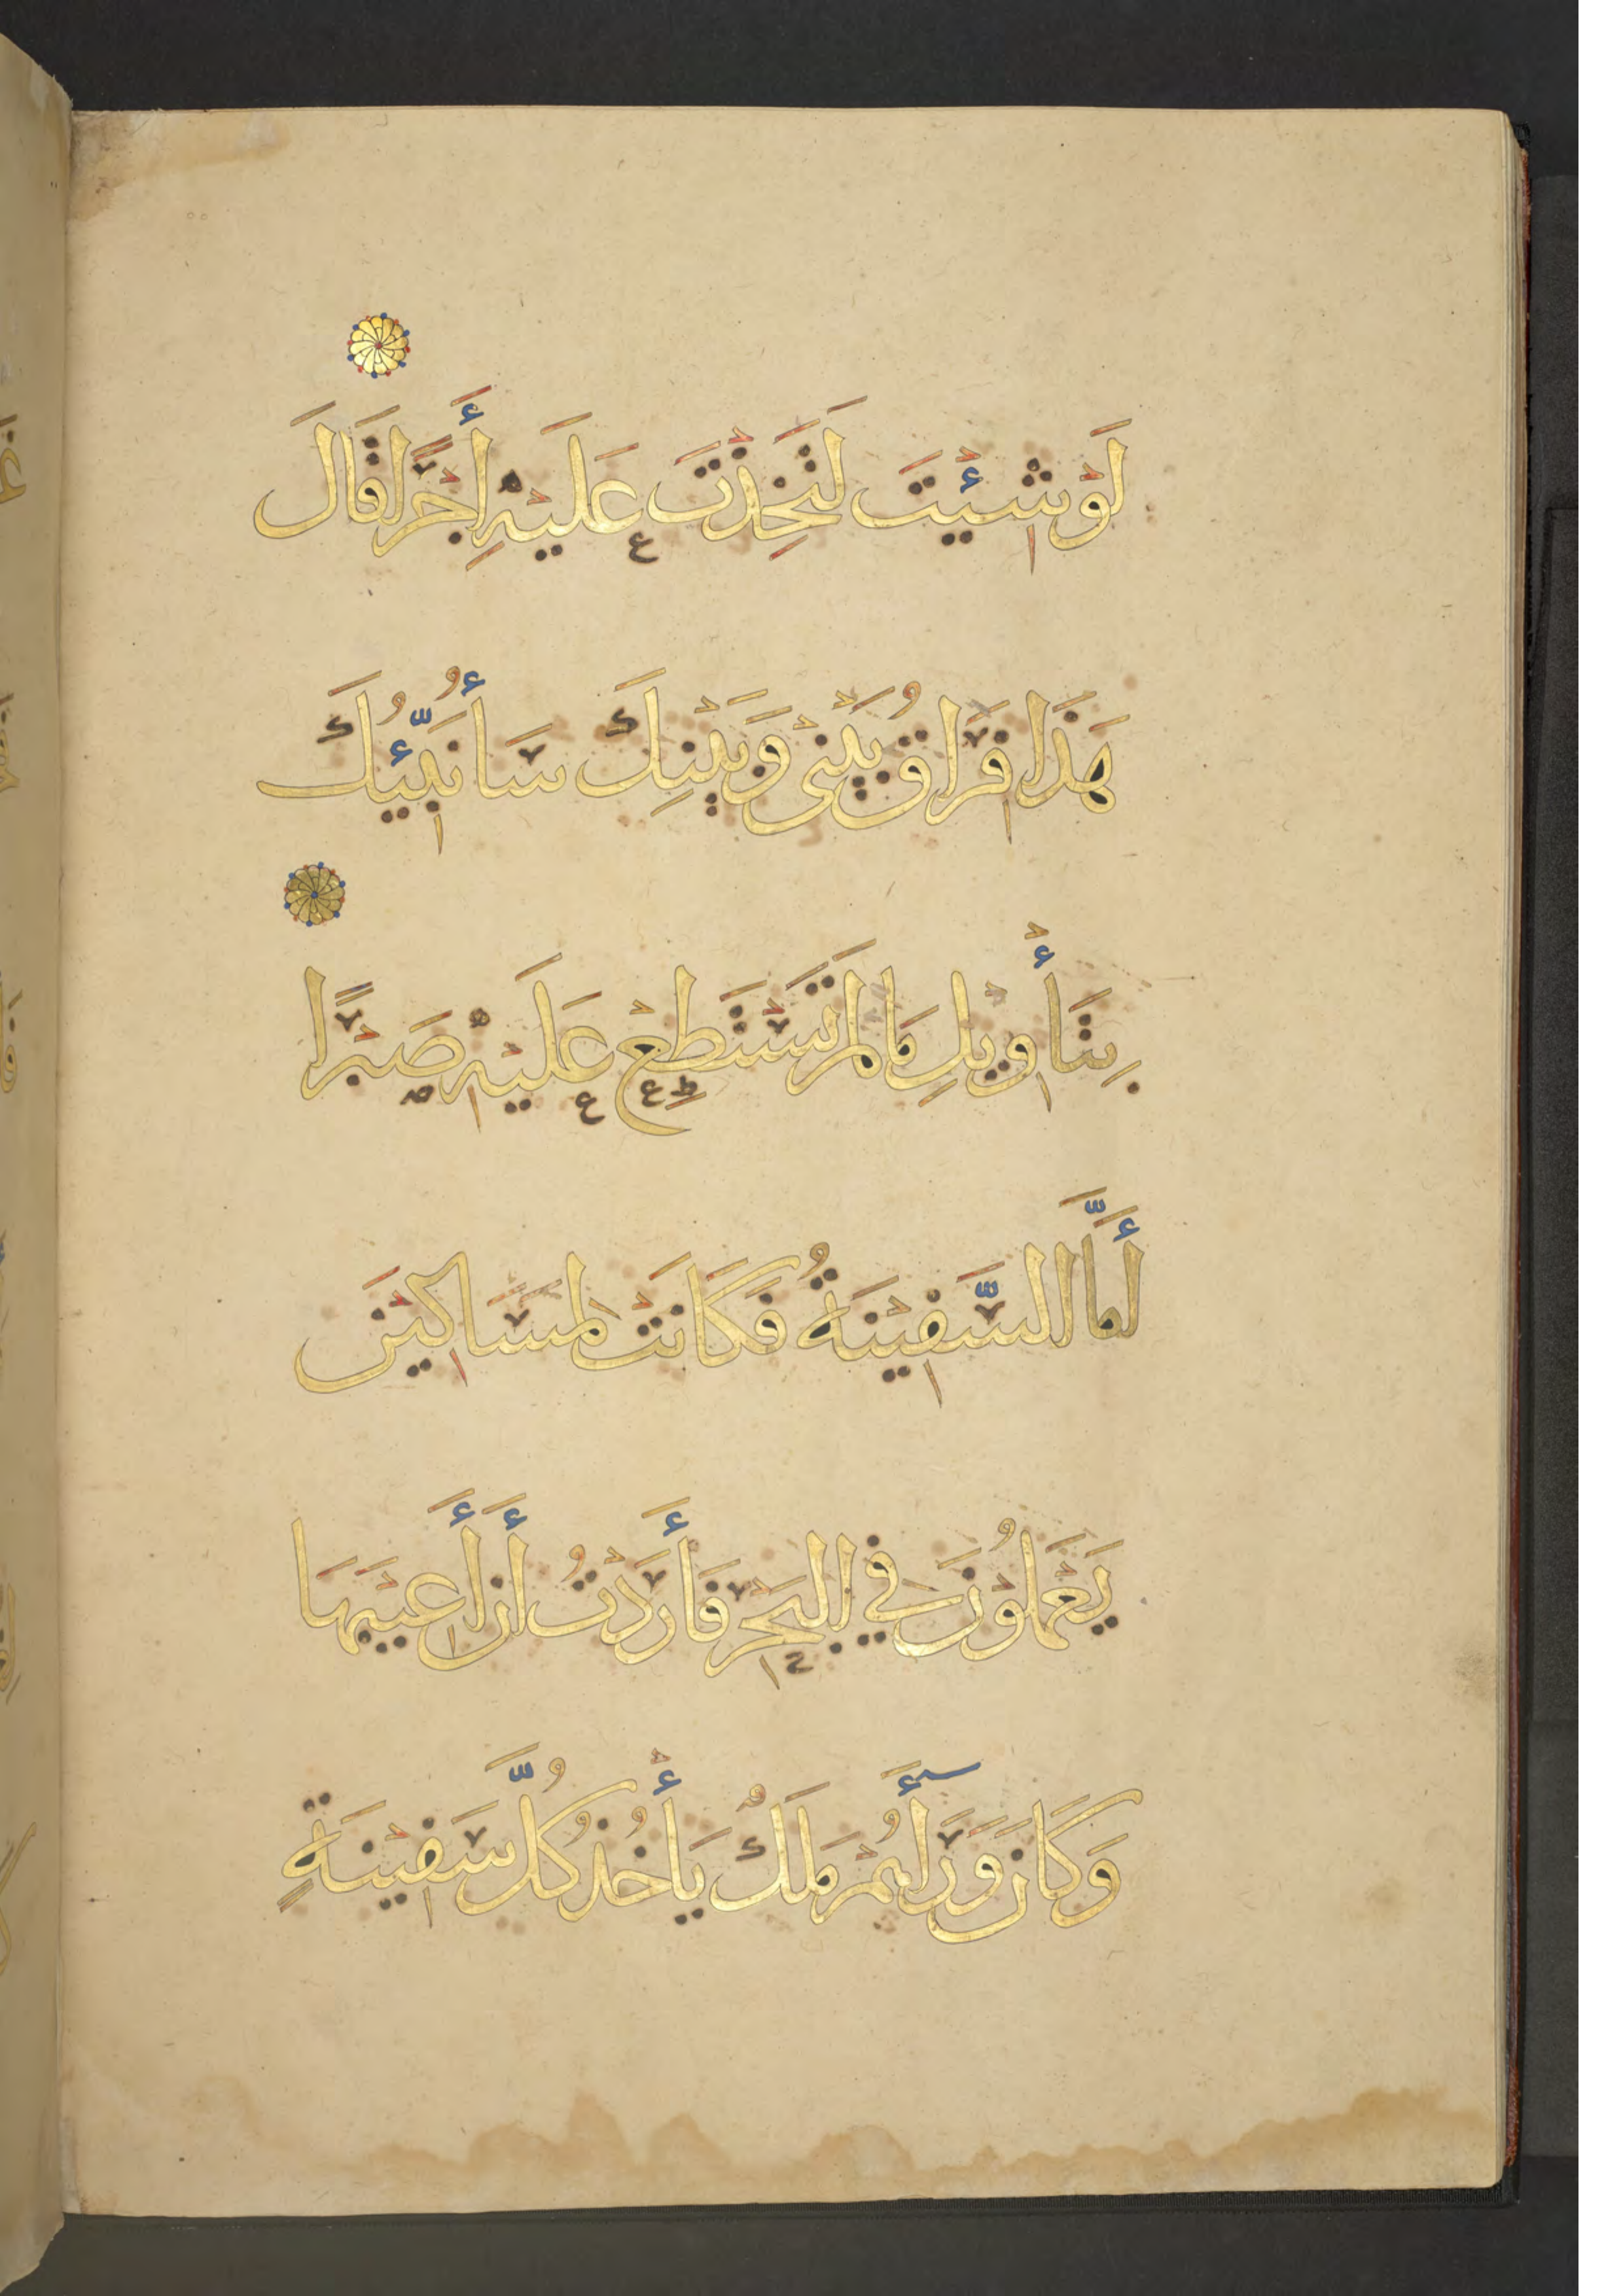 لَوْ شِئْتَ لَتَخِذْتَ عَلَيْهِ أَجْرًا قَالَ
هَذَا فِرَاقُ بَيْنِي وَبَيْنِكَ سَأُنَبِّئُكَ
بِتَأْوِيلِ مَا لَمْ تَسْتَطِعْ عَلَيْهِ صَبْرًا
أَمَّا السَّفِيْنَةُ فَكَانَتْ لِمَسَاكِيْنَ
يَعْمَلُوْنَ فِي الْبَحْرِ فَأَرَدْتُ أَنْ أَعِيْبَهَا
وَكَانَ وَرَاءَهُمْ مَلِكٌ يَأْخُذُ كُلَّ سَفِيْنَةٍ